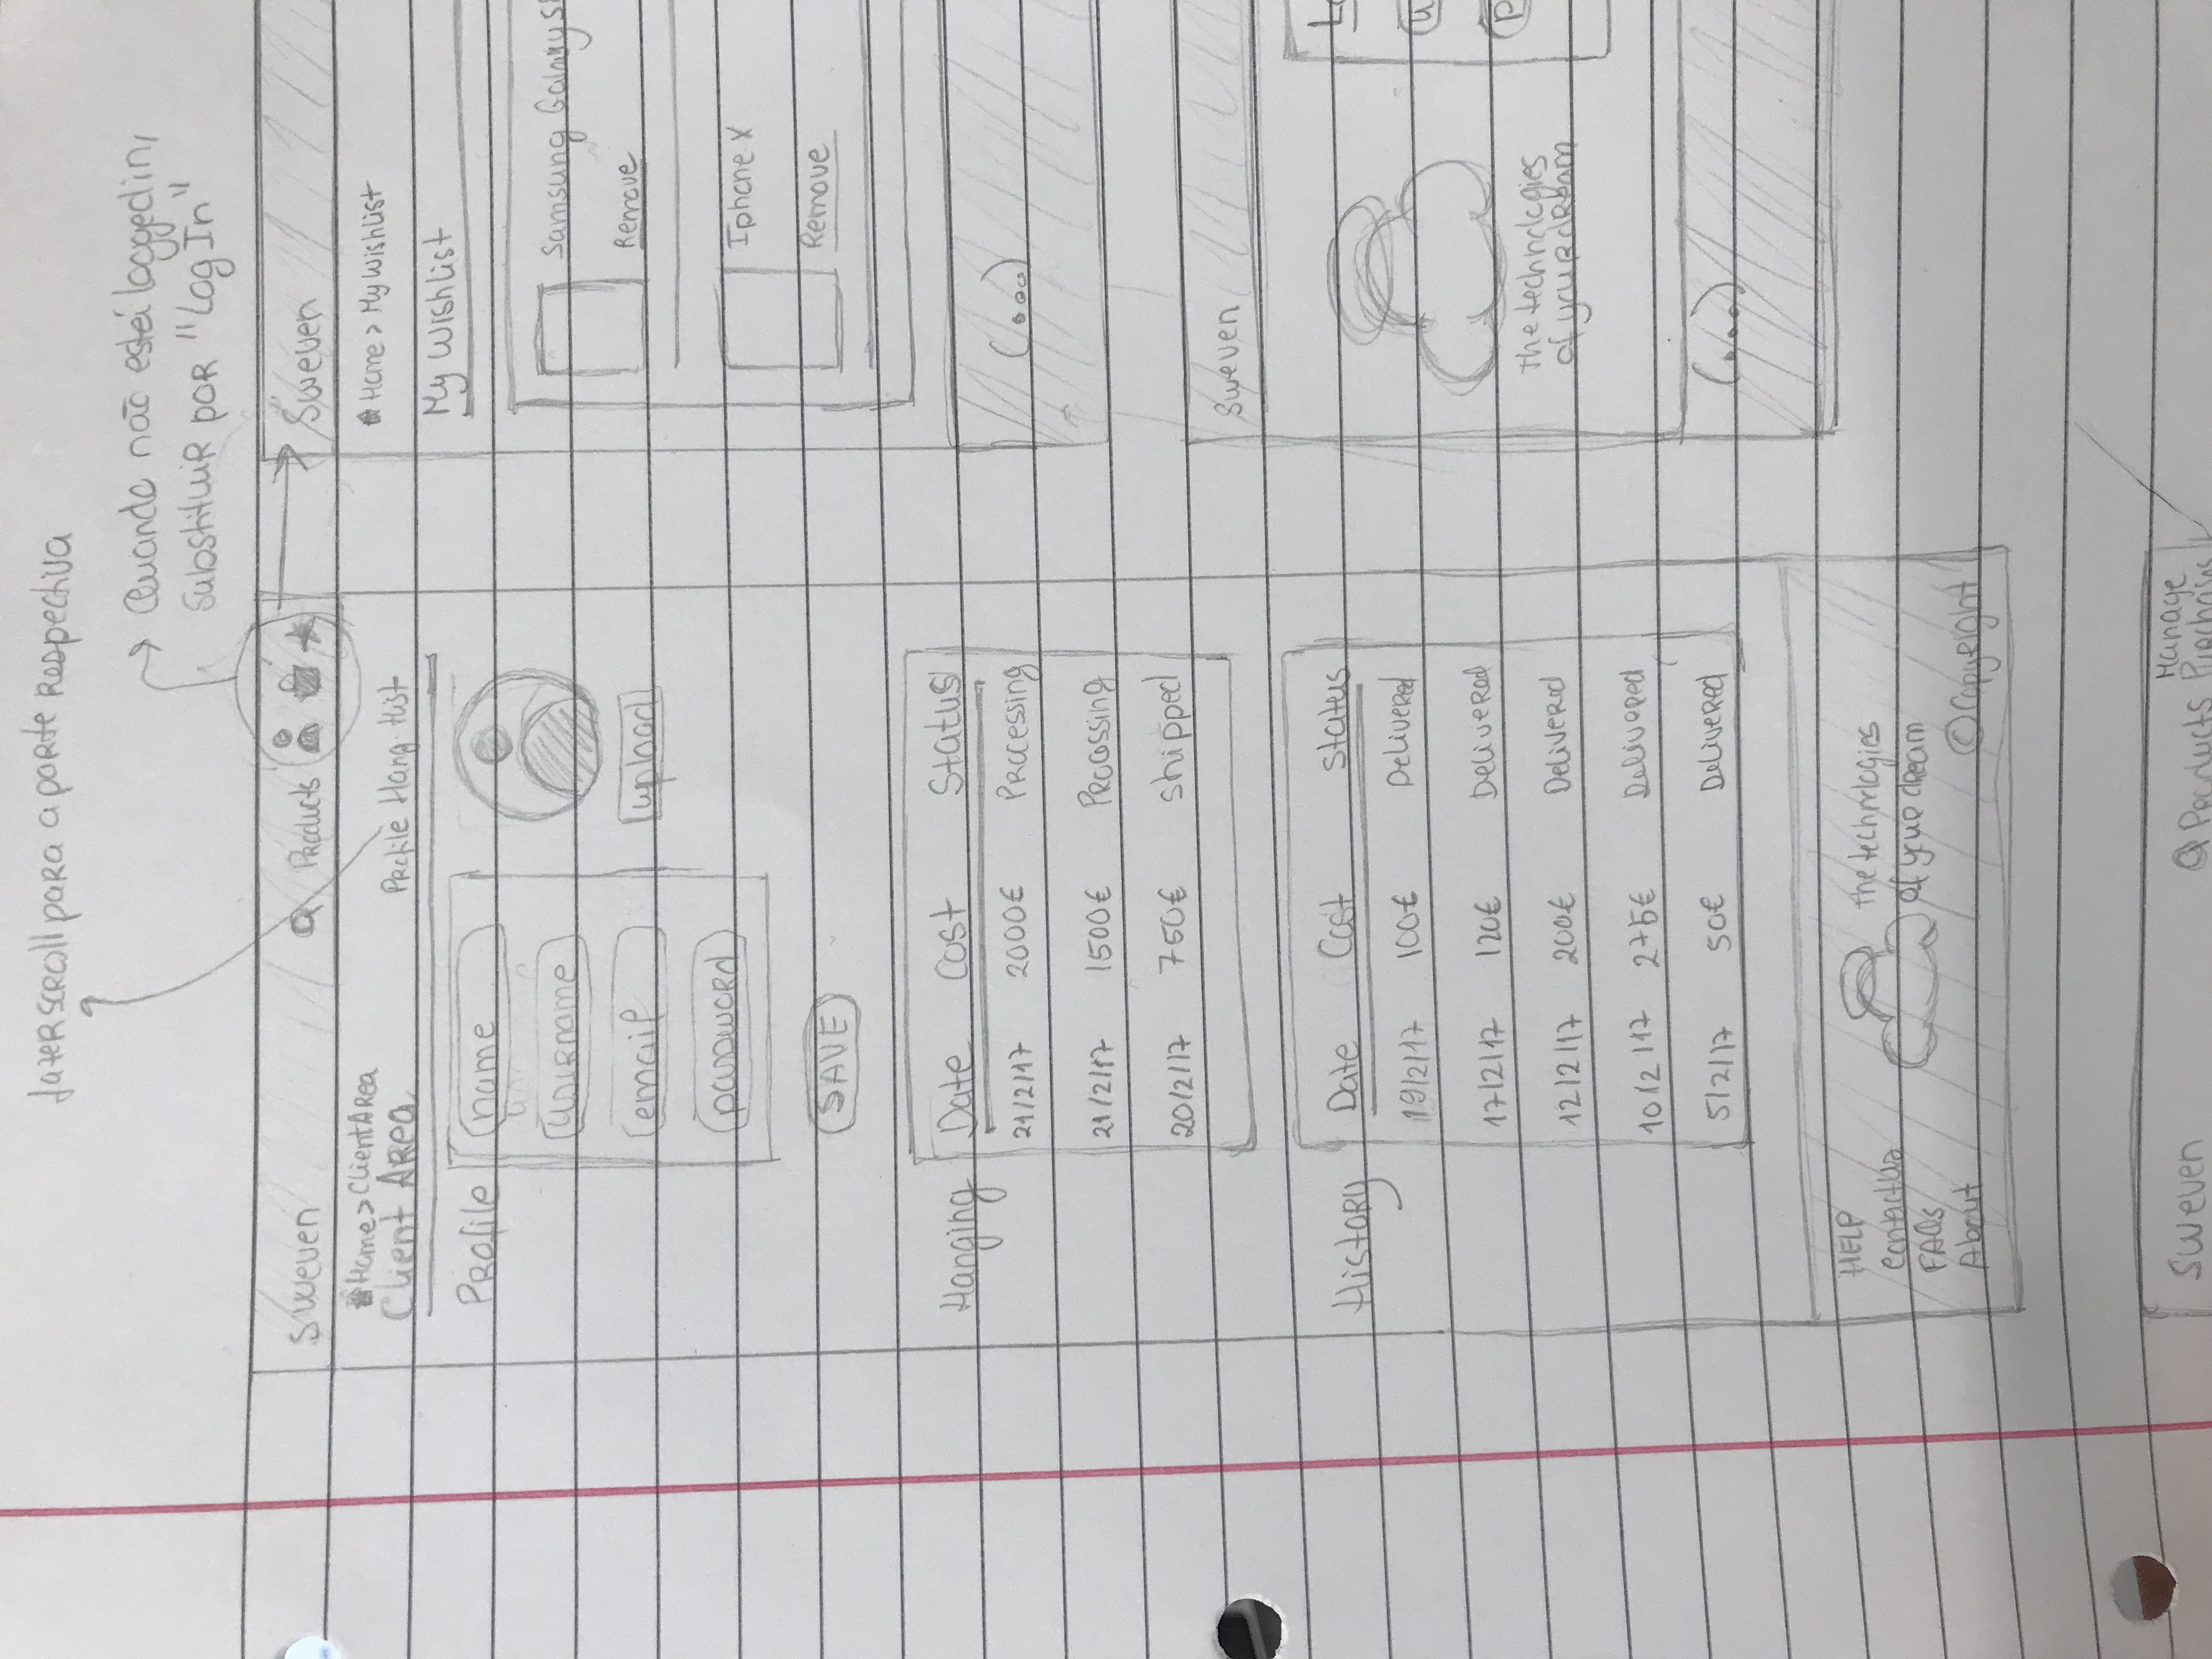 fazer scroll para a parte respectiva
Quando não está logged in,
substituir por "Log In"
Sweven
Products
Home > Client Area
Client Area
Profile Hang. Hist
Profile
name
username
email
password
upload
SAVE
Hanging
Date Cost Status
21/2/17 2000€ Processing
21/2/17 1500€ Processing
20/2/17 750€ Shipped
History
Date Cost Status
19/2/17 100€ Delivered
17/2/17 120€ Delivered
12/2/17 200€ Delivered
10/2/17 275€ Delivered
5/2/17 50€ Delivered
HELP
contact us
FAQs
About
The technologies
of your dream
©Copyright
Sweven
Home > My Wishlist
My Wishlist
Samsung Galaxy S
Remove
Iphone X
Remove
(...)
Sweven
The technologies
of your dream
L
u
p
(...)
Sweven
Products
Manage
Purchases